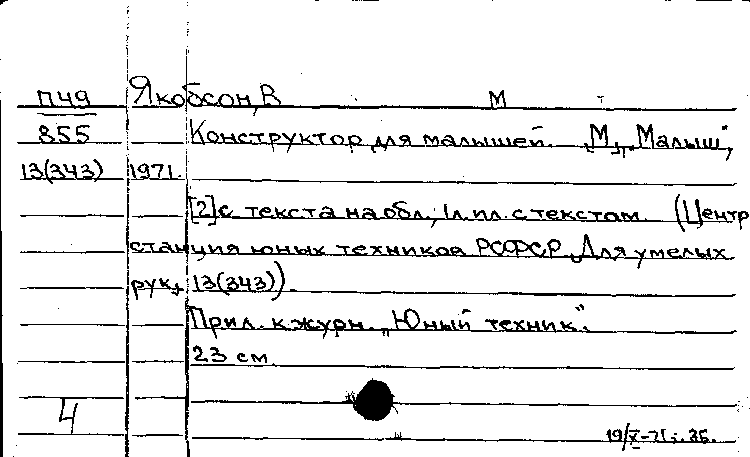 П49 Якобсон, В М
855 Конструктор для малышей. „М., „Малыш",
13(343) 1971.
[2]с. текста на обл., 1л. ил. с текстом. (Центр
станция юных техников РСФСР. Для умелых
рук, 13(343)).
Прил. к журн. „Юный техник".
23 см
4
19/X-71г.